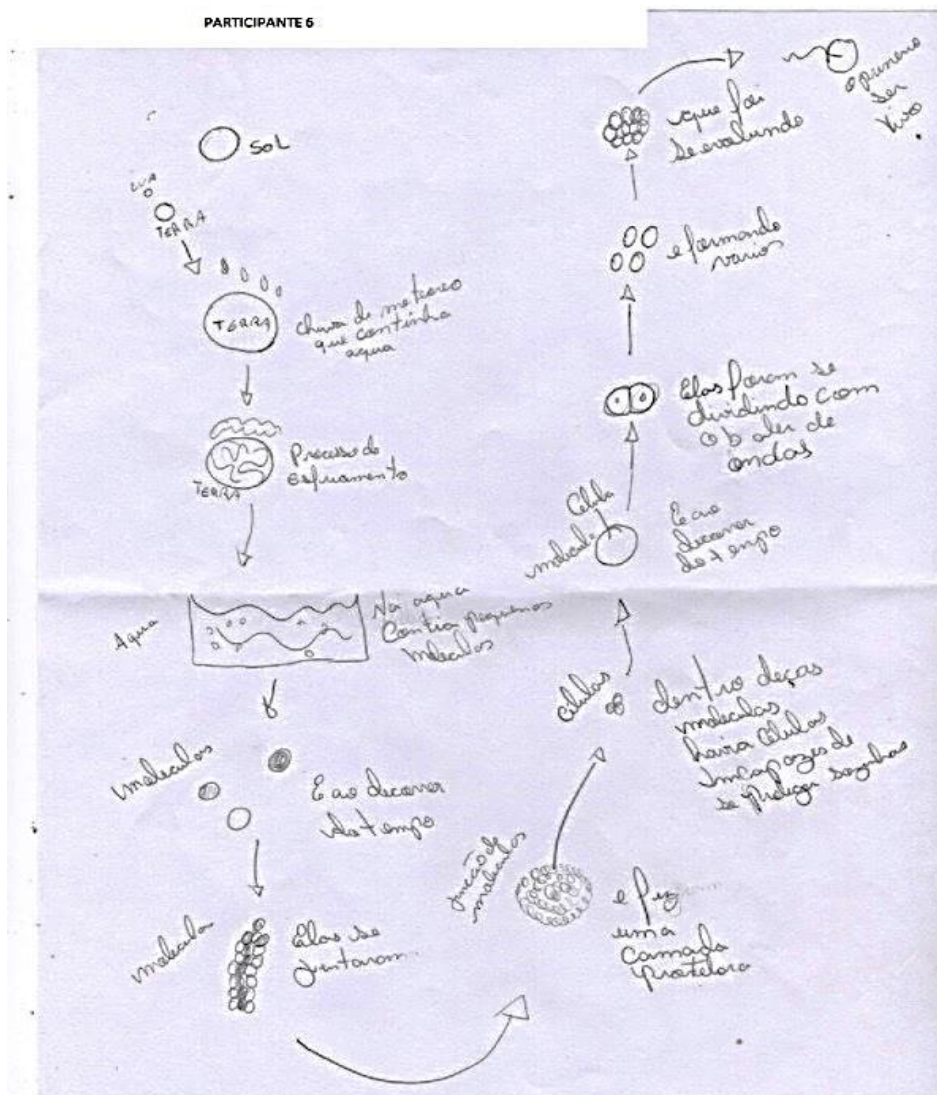 PARTICIPANTE 6
SOL
LUA
TERRA
TERRA
chuva de meteoro
que continha
aqua
TERRA
Processo de
esfriamento
Aqua
Na aqua
Continha pequenas
moleculas
moleculas
E ao decorrer
do tempo
moleculas
Elas se
juntaram
junção de
moleculas
e fez
uma
camada
protetora
Células
dentro deças
moleculas
havia Células
Incapazes de
se proteger sozinhas
Célula
molecula
E ao
decorrer
do tempo
Elas foram se
dividindo com
o bater de
ondas
e formando
varios
que foi
se evoluindo
o primeiro
ser
vivo